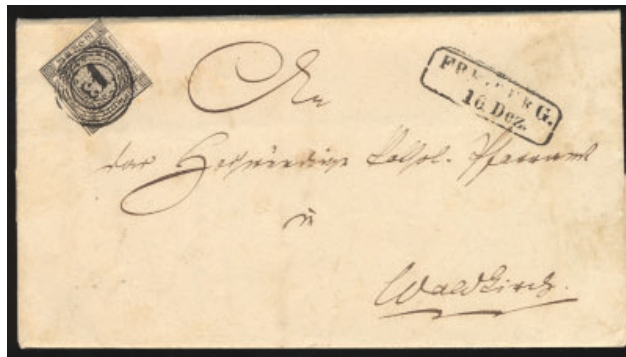 An
FREIBURG.
16 Dez.
das Hochwürdige Kathol. Pfarramt
in
Waldkirch.